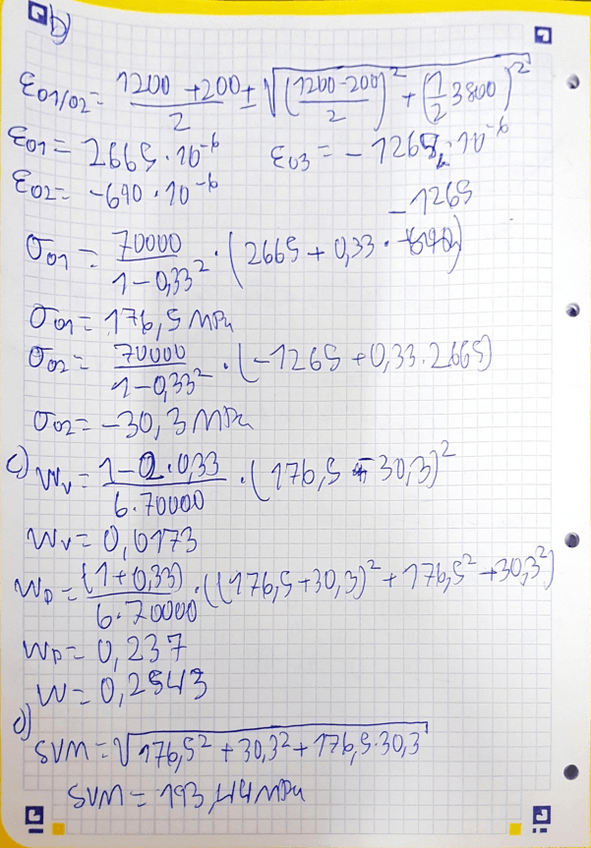 b)
ε01/02 = (1200 + 200)/2 ± √(((1200-200)/2)² + (1/2 3800)²)
ε01 = 2665 · 10⁻⁶ ε03 = - 1265 · 10⁻⁶
ε02 = -690 · 10⁻⁶
-1265
σ01 = 70000/(1-0,33²) · (2665 + 0,33 · )
σ01 = 176,5 MPa
σ02 = 70000/(1-0,33²) · (-1265 + 0,33 · 2665)
σ02 = -30,3 MPa
c) Wv = (1-2·0,33)/(6·70000) · (176,5 - 30,3)²
Wv = 0,0173
WD = (1+0,33)/(6·70000) · ((176,5+30,3)² + 176,5² + 30,3²)
WD = 0,237
W = 0,2543
d)
SVM = √(176,5² + 30,3² + 176,5·30,3)
SVM = 193,44 MPa